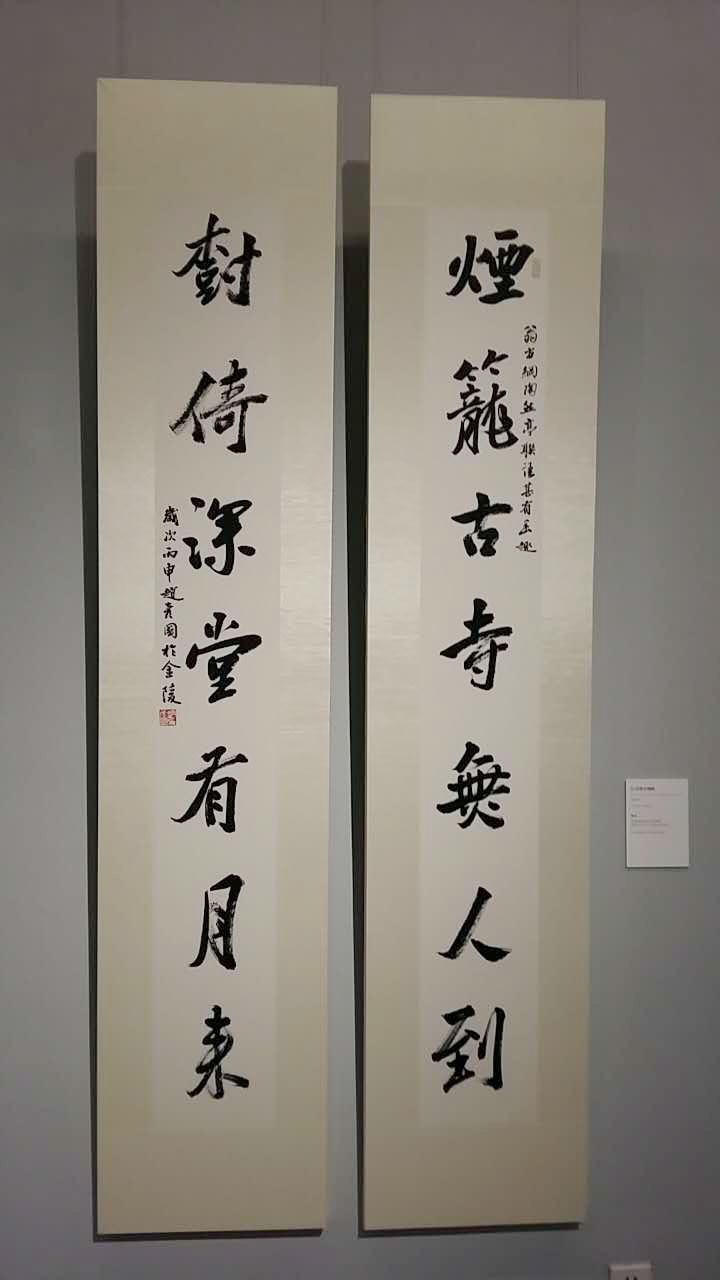 煙籠古寺無人到
翁方綱陶然亭聯語甚有趣
樹倚深堂有月來
歲次丙申趙彥國於金陵